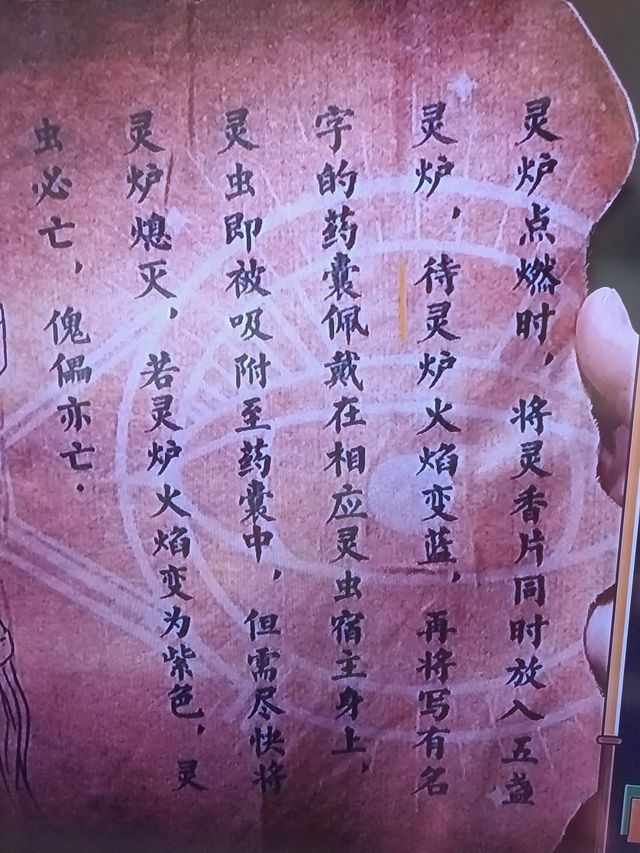 灵炉点燃时，将灵香片同时放入五盏
灵炉，待灵炉火焰变蓝，再将写有名
字的药囊佩戴在相应灵虫宿主身上，
灵虫即被吸附至药囊中，但需尽快将
灵炉熄灭，若灵炉火焰变为紫色，灵
虫必亡，傀儡亦亡．